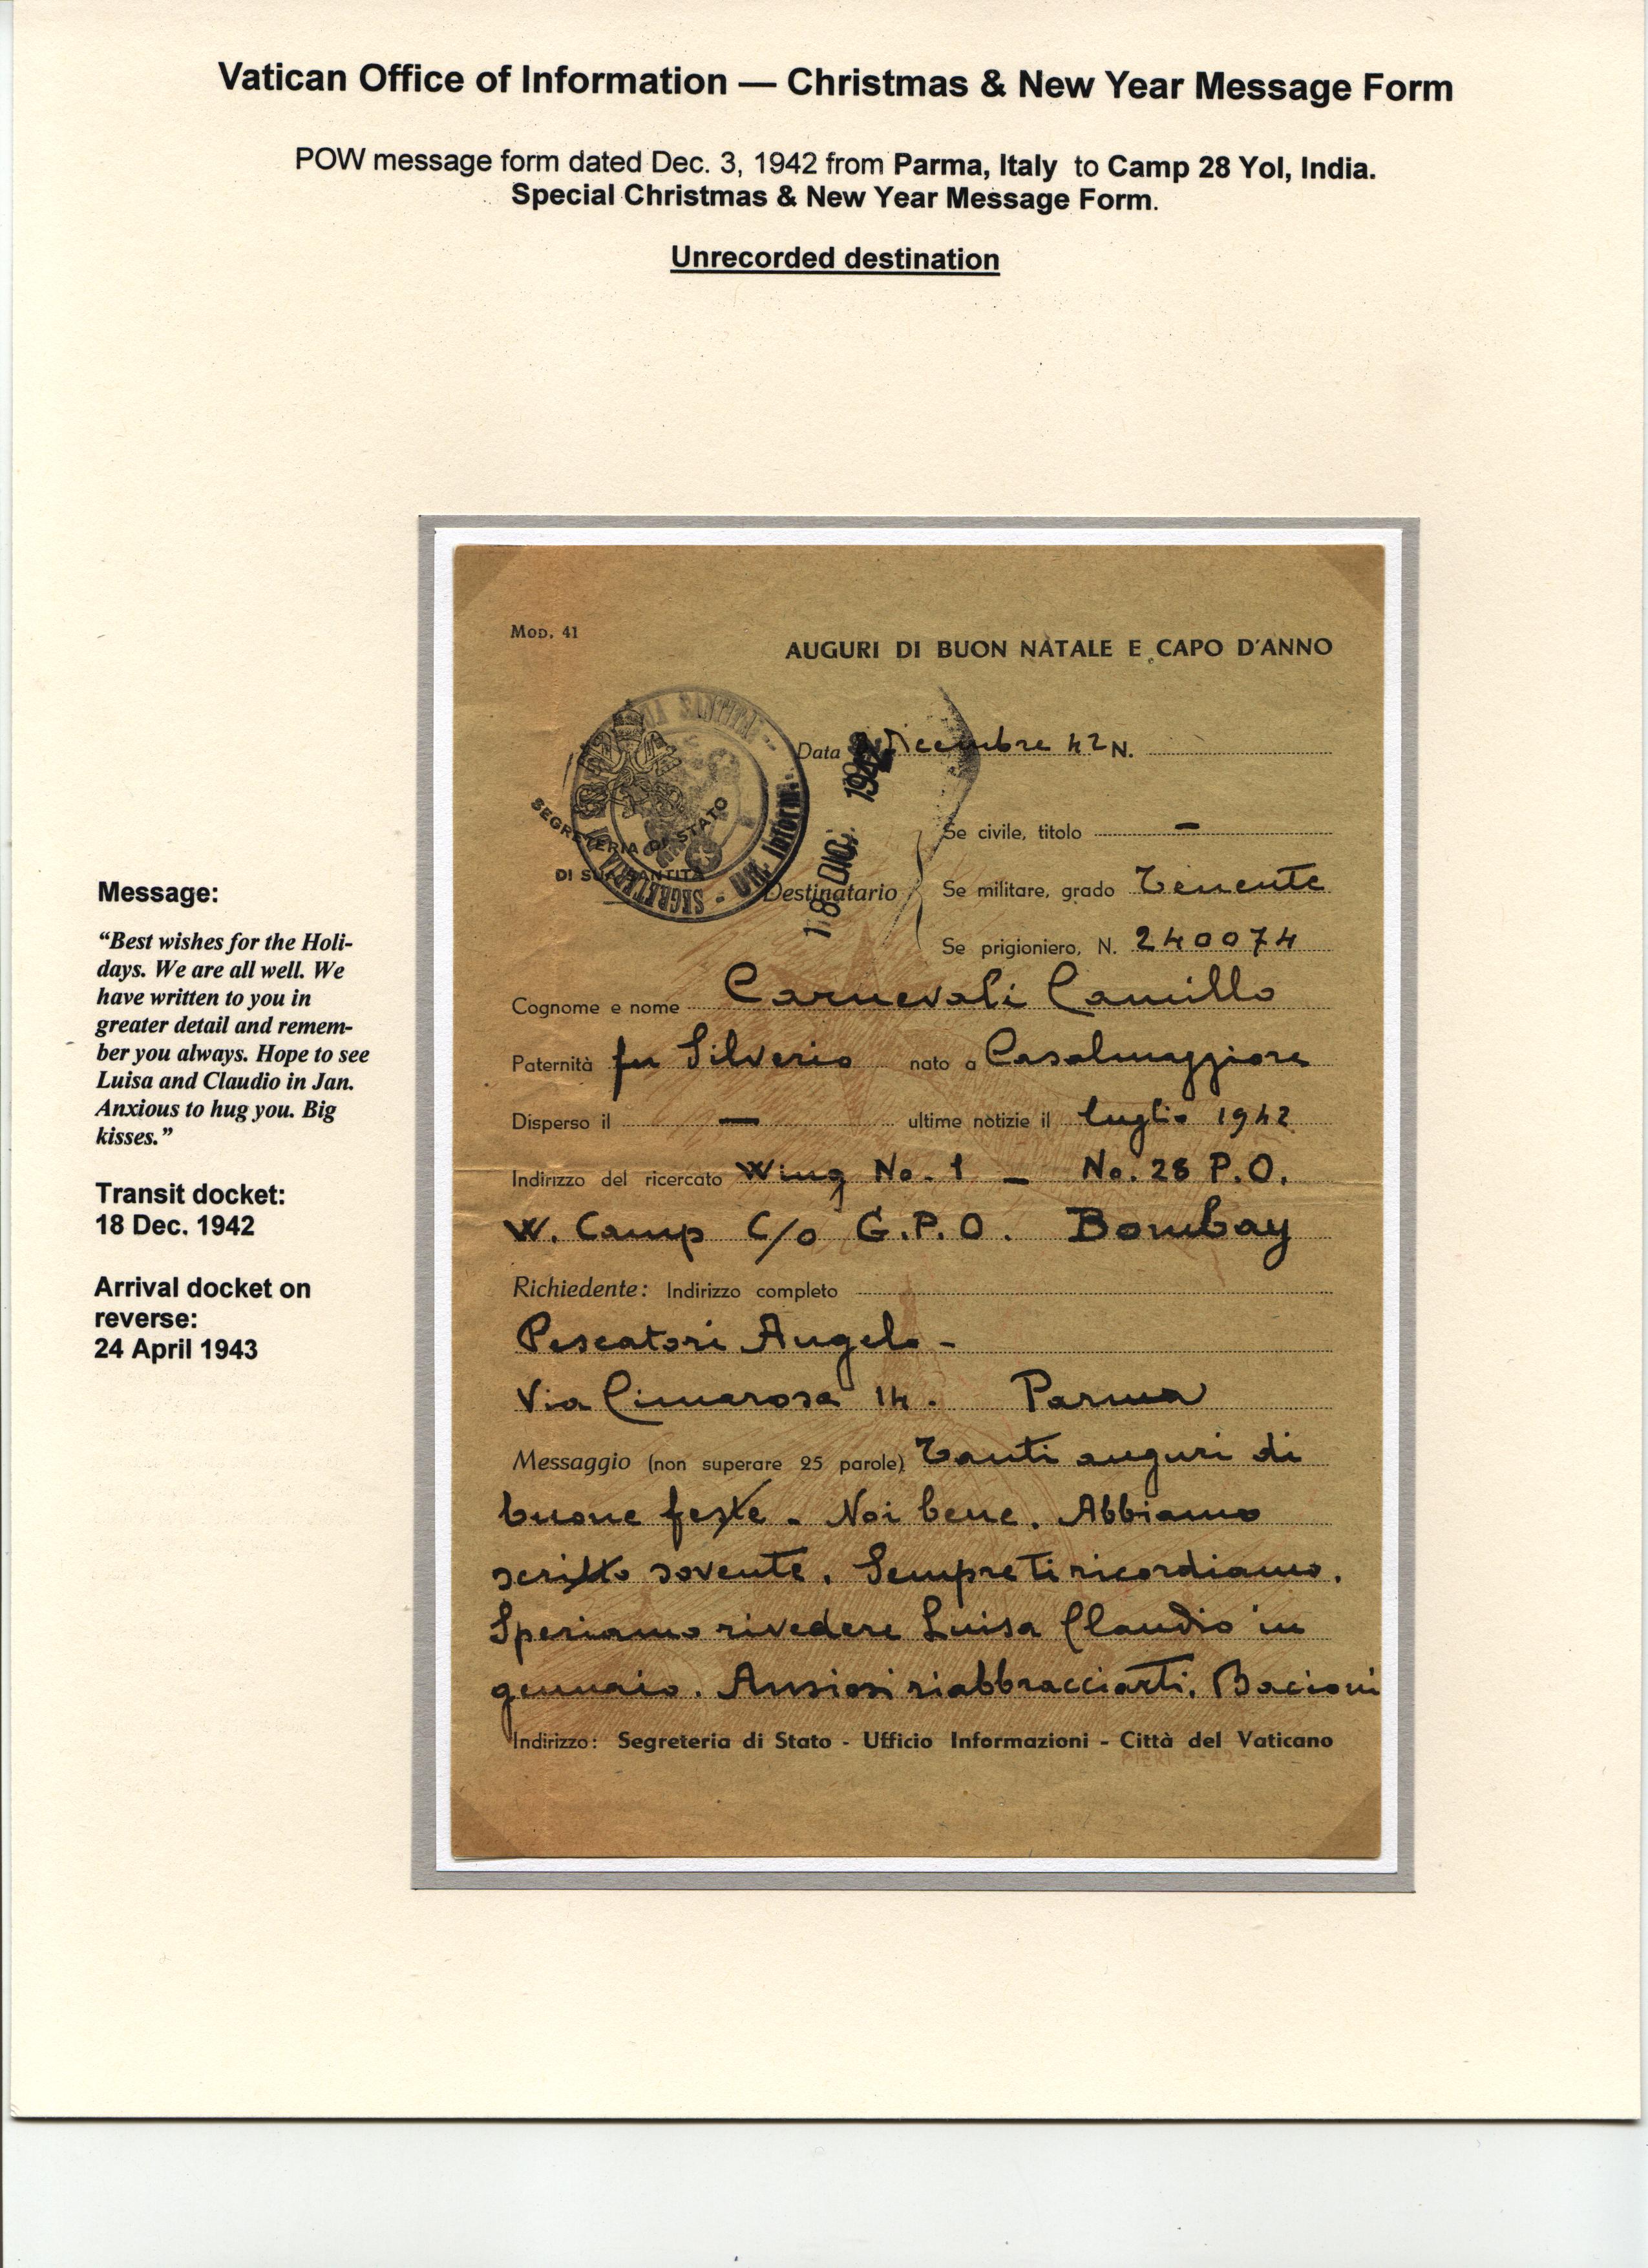 Vatican Office of Information — Christmas & New Year Message Form
POW message form dated Dec. 3, 1942 from Parma, Italy to Camp 28 Yol, India.
Special Christmas & New Year Message Form.
Unrecorded destination
Message:
“Best wishes for the Holi-
days. We are all well. We
have written to you in
greater detail and remem-
ber you always. Hope to see
Luisa and Claudio in Jan.
Anxious to hug you. Big
kisses.”
Transit docket:
18 Dec. 1942
Arrival docket on
reverse:
24 April 1943
MOD. 41
AUGURI DI BUON NATALE E CAPO D'ANNO
SEGRETERIA DI STATO
DI SUA SANTITÀ
SEGRETERIA DI SUA SANTITÀ - Uff. Inform.
18 DIC. 1942
Data Dicembre 42 N.
Se civile, titolo —
Destinatario
Se militare, grado Tenente
Se prigioniero, N. 240074
Cognome e nome Carnevali Camillo
Paternità fu Silverio nato a Casalmaggiore
Disperso il — ultime notizie il luglio 1942
Indirizzo del ricercato Wing No. 1 — No. 28 P.O.
W. Camp C/o G.P.O. Bombay
Richiedente: Indirizzo completo
Pescatori Angelo -
Via Cimarosa 14. Parma
Messaggio (non superare 25 parole) Tanti auguri di
buone feste. Noi bene. Abbiamo
scritto sovente. Sempre ti ricordiamo.
Speriamo rivedere Luisa Claudio in
gennaio. Ansiosi riabbracciarti. Bacioni
Indirizzo: Segreteria di Stato - Ufficio Informazioni - Città del Vaticano